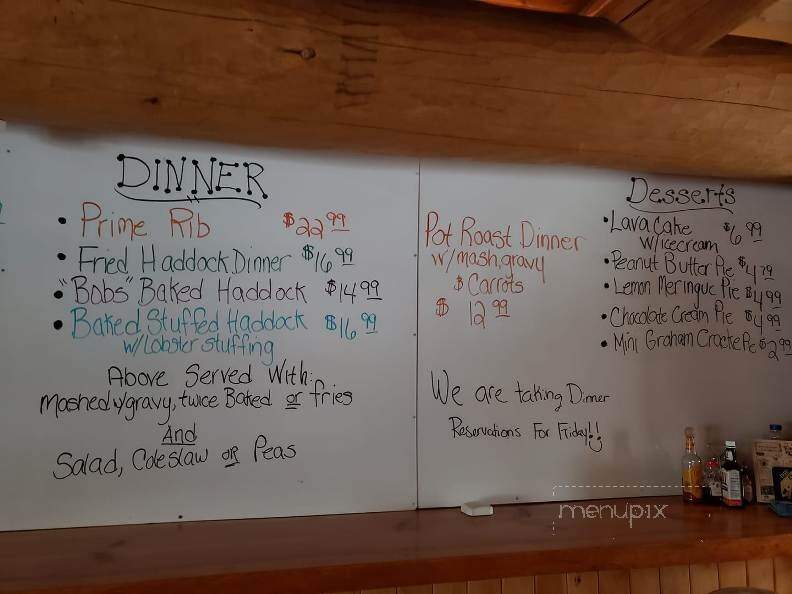 DINNER
• Prime Rib $22.99
• Fried Haddock Dinner $16.99
• "Bobs" Baked Haddock $14.99
• Baked Stuffed Haddock $16.99
w/Lobster stuffing
Above Served With:
Mashed w/gravy, twice Baked or fries
And
Salad, Coleslaw or Peas
Pot Roast Dinner
w/mash, gravy
& Carrots
$ 12.99
We are taking Dinner
Reservations For Friday!!
Desserts
• Lava Cake $6.99
w/icecream
• Peanut Butter Pie $4.79
• Lemon Meringue Pie $4.99
• Chocolate Cream Pie $4.99
• Mini Graham Cracke Pie $2.99
menupix